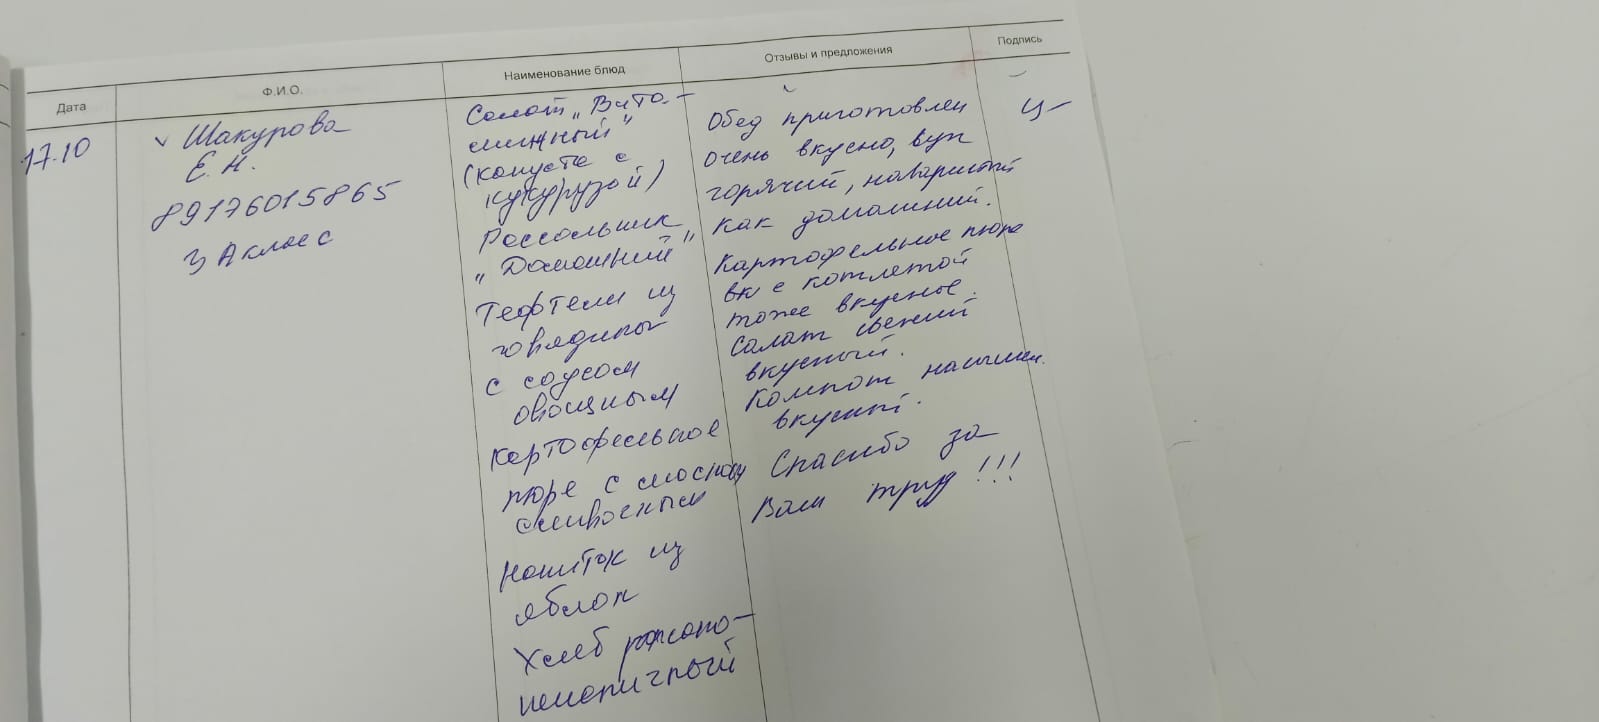 Дата
Ф.И.О.
Наименование блюд
Отзывы и предложения
Подпись
17.10
Шакурова
Е.Н.
89176015865
3 А класс
Салат „Вита-
минный"
(капуста с
кукурузой)
Рассольник
„Домашний"
Тефтели из
говядины
с соусом
овощным
Картофельное
пюре с маслом
сливочным
Напиток из
яблок
Хлеб ржано-
пшеничный
Обед приготовлен
очень вкусно, суп
горячий, наваристый
как домашний.
Картофельное пюре
с котлетой
тоже вкусное.
Салат свежий
вкусный.
Компот насыщен.
вкусный.
Спасибо за
Ваш труд!!!